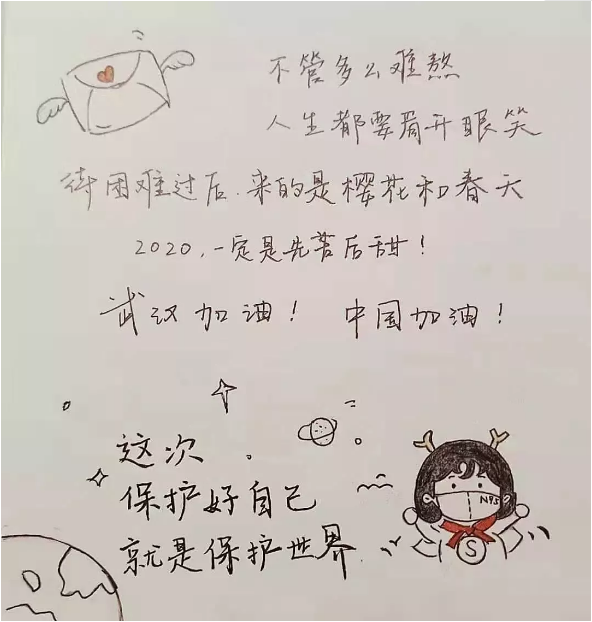 不管多么难熬
人生都要眉开眼笑
待困难过后.来的是樱花和春天
2020,一定是先苦后甜!
武汉加油! 中国加油!
这次
保护好自己
就是保护世界
N95
S